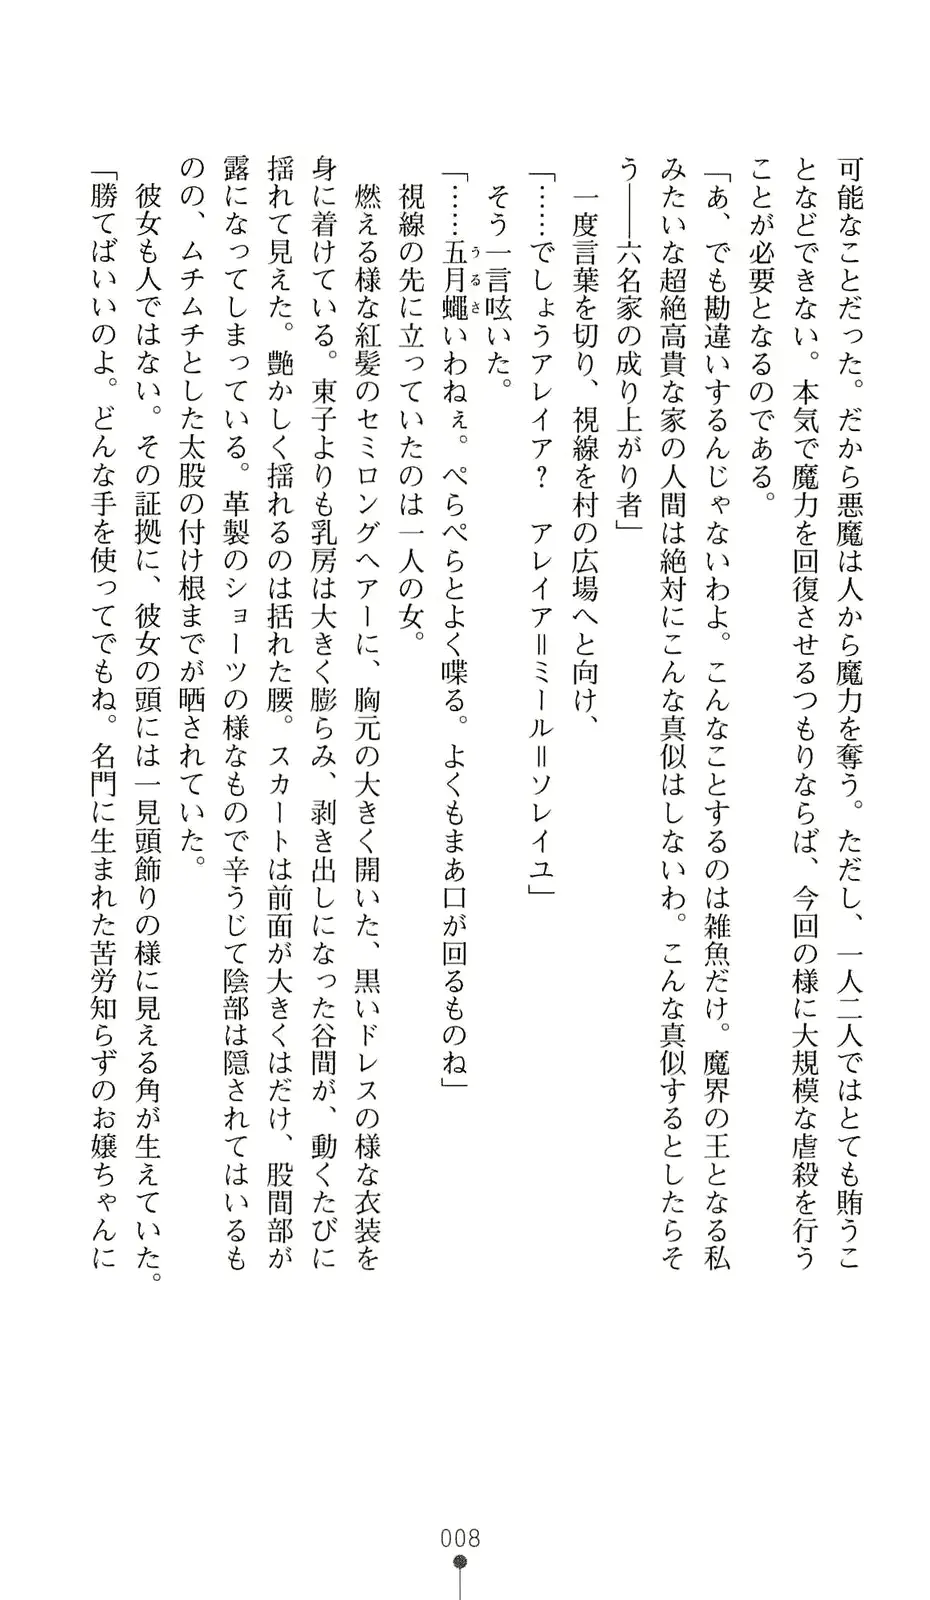 可能なことだった。だから悪魔は人から魔力を奪う。ただし、一人二人ではとても賄うこ
となどできない。本気で魔力を回復させるつもりならば、今回の様に大規模な虐殺を行う
ことが必要となるのである。
「あ、でも勘違いするんじゃないわよ。こんなことするのは雑魚だけ。魔界の王となる私
みたいな超絶高貴な家の人間は絶対にこんな真似はしないわ。こんな真似するとしたらそ
う――六名家の成り上がり者」
一度言葉を切り、視線を村の広場へと向け、
「……でしょうアレイア?　アレイア＝ミール＝ソレイユ」
そう一言呟いた。
「……五月蠅いわねぇ。ぺらぺらとよく喋る。よくもまあ口が回るものね」
うるさ
視線の先に立っていたのは一人の女。
燃える様な紅髪のセミロングヘアーに、胸元の大きく開いた、黒いドレスの様な衣装を
身に着けている。東子よりも乳房は大きく膨らみ、剥き出しになった谷間が、動くたびに
揺れて見えた。艶かしく揺れるのは括れた腰。スカートは前面が大きくはだけ、股間部が
露になってしまっている。革製のショーツの様なもので辛うじて陰部は隠されてはいるも
のの、ムチムチとした太股の付け根までが晒されていた。
彼女も人ではない。その証拠に、彼女の頭には一見頭飾りの様に見える角が生えていた。
「勝てばいいのよ。どんな手を使ってでもね。名門に生まれた苦労知らずのお嬢ちゃんに
008